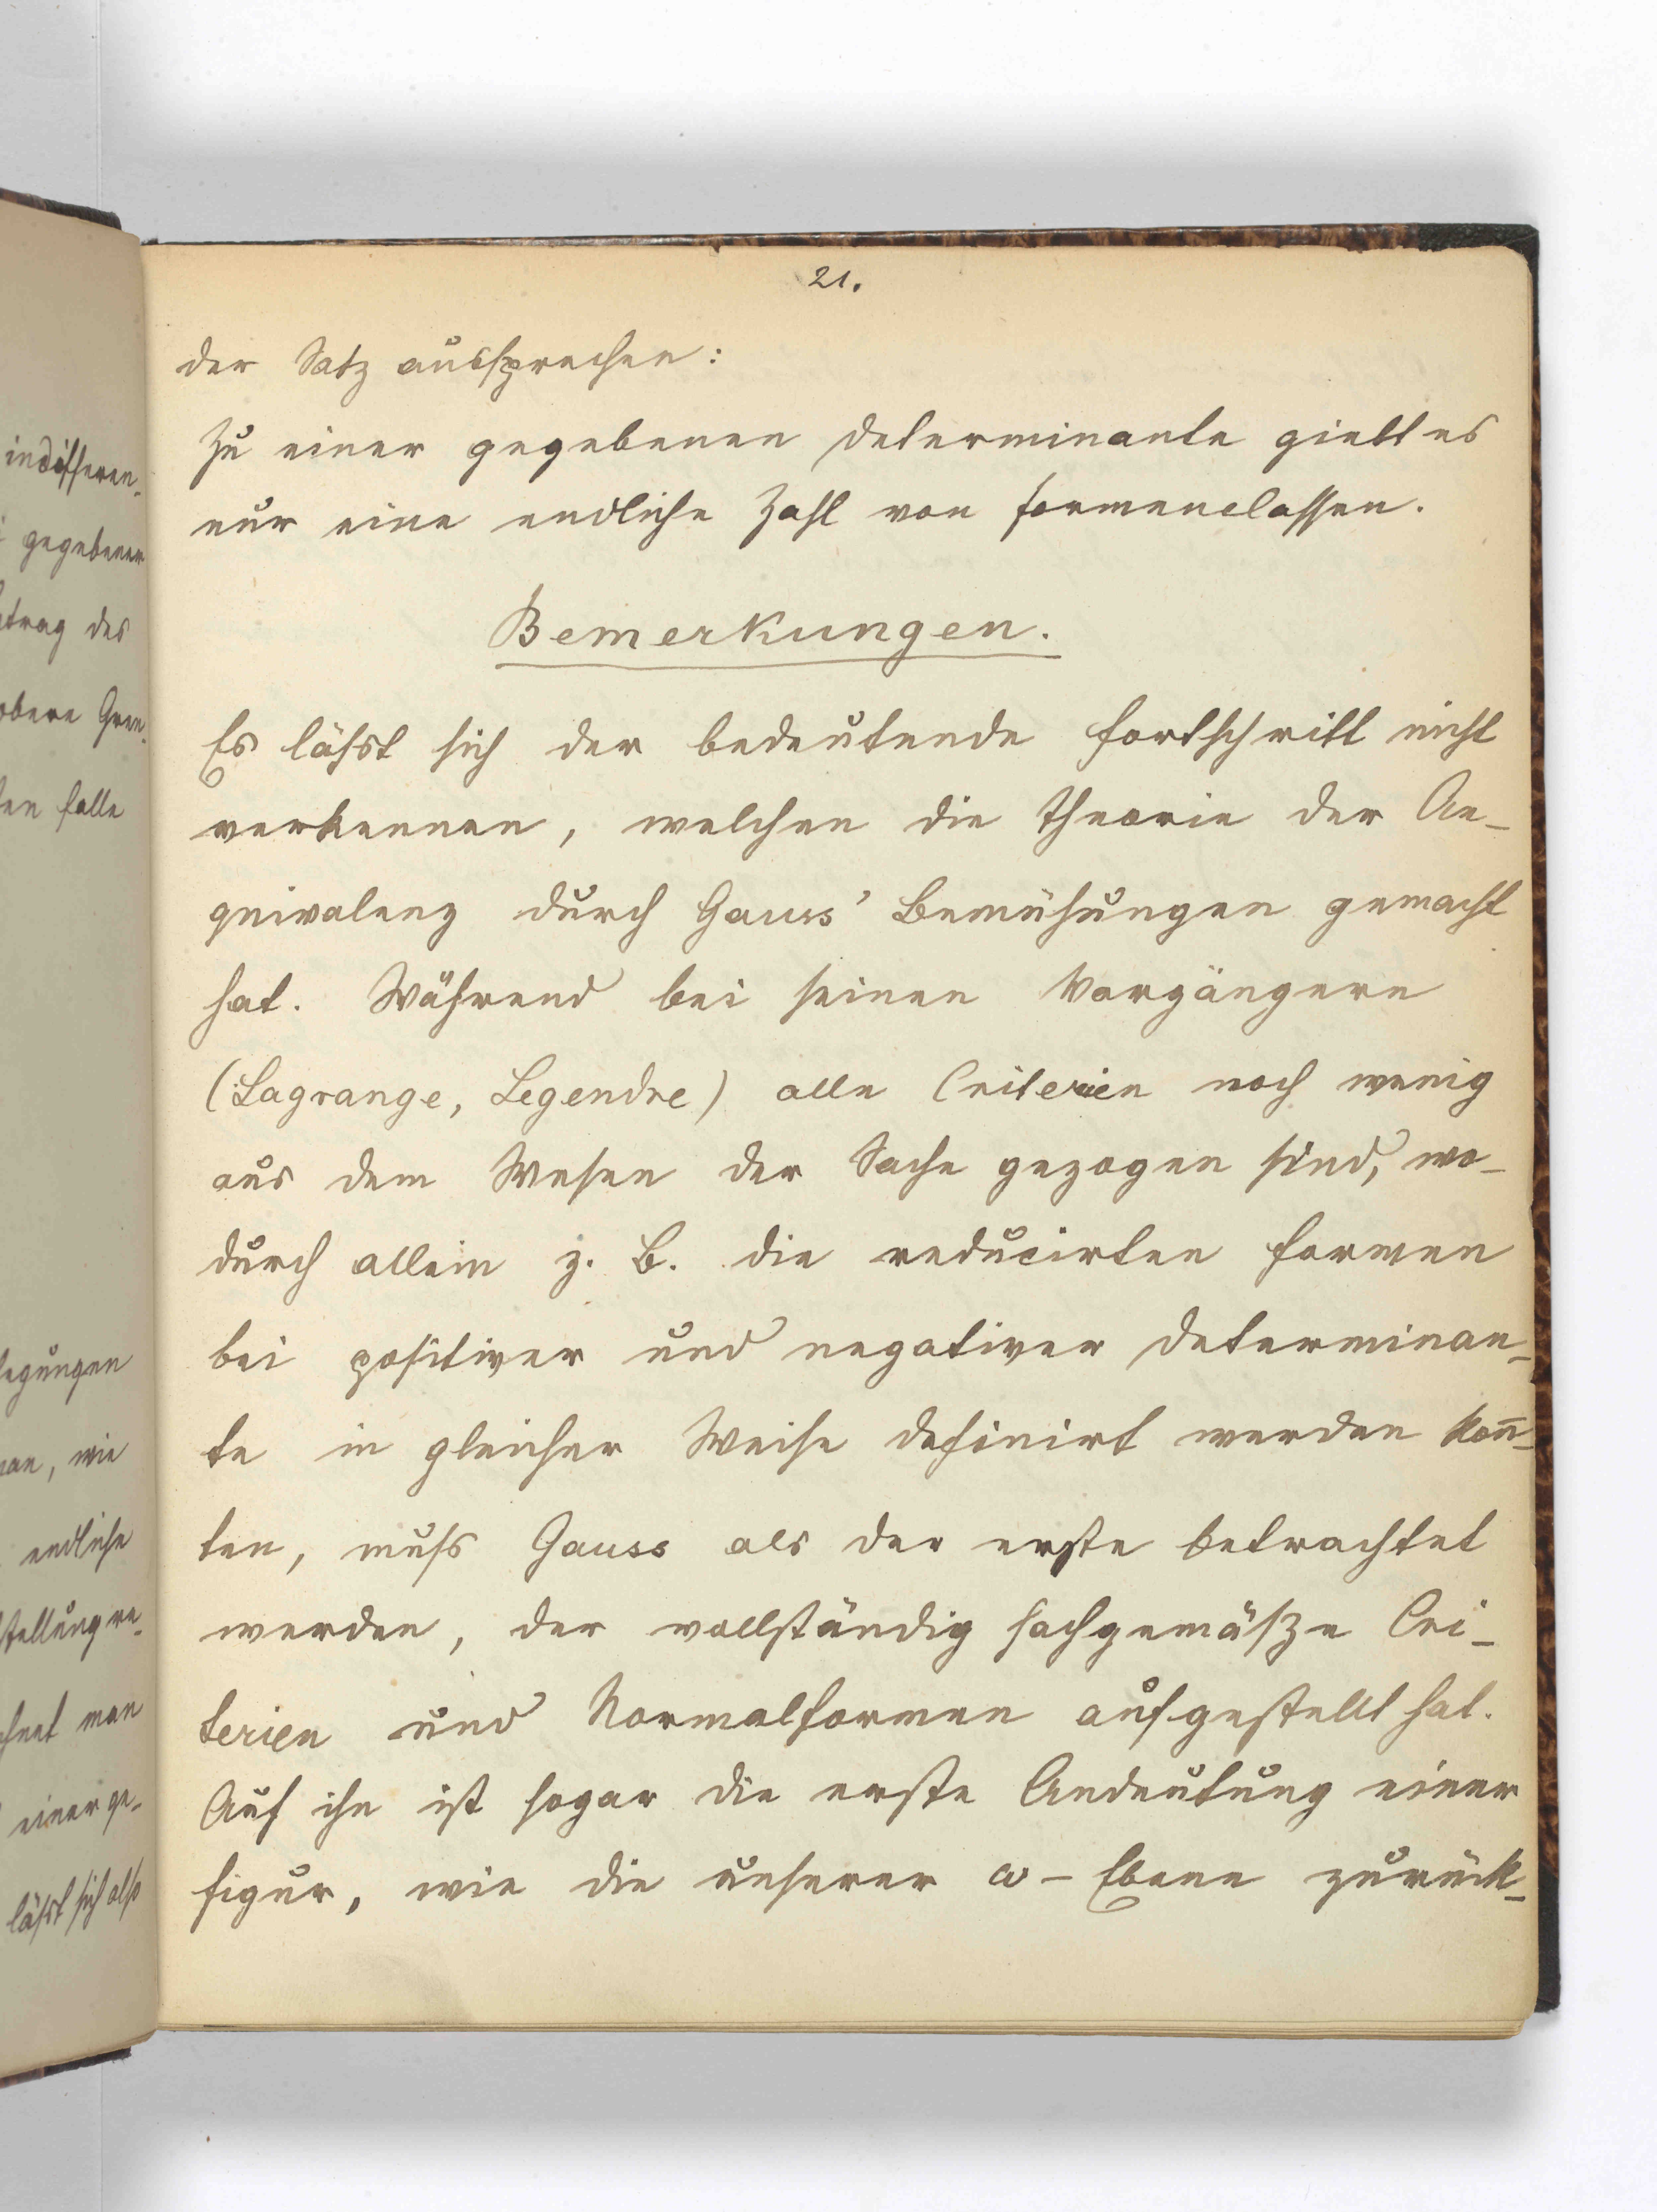 21.
der Satz aussprechen:
Zu einer gegebenen Determinante giebt es
nur eine endliche Zahl von Formenclassen.
Bemerkungen.
Es lässt sich der bedeutende Fortschritt nicht
verkennen, welchen die Theorie der Ae-
quivalenz durch Gauss' Bemühungen gemacht
hat. Während bei seinen Vorgängern
(Lagrange, Legendre) alle Criterien noch wenig
aus dem Wesen der Sache gezogen sind, wo-
durch allein z. B. die reducirten Formen
bei positiver und negativer Determinan-
te in gleicher Weise definirt werden kon̄-
ten, muss Gauss als der erste betrachtet
werden, der vollständig sachgemäße Cri-
terien und Normalformen aufgestellt hat.
Auf ihn ist sogar die erste Andeutung einer
Figur, wie die unserer ω-Ebene zurück-
indifferen-
gegebener
des
obere Gren-
Falle
wie
endliche
man
einer ge-
lässt sich also